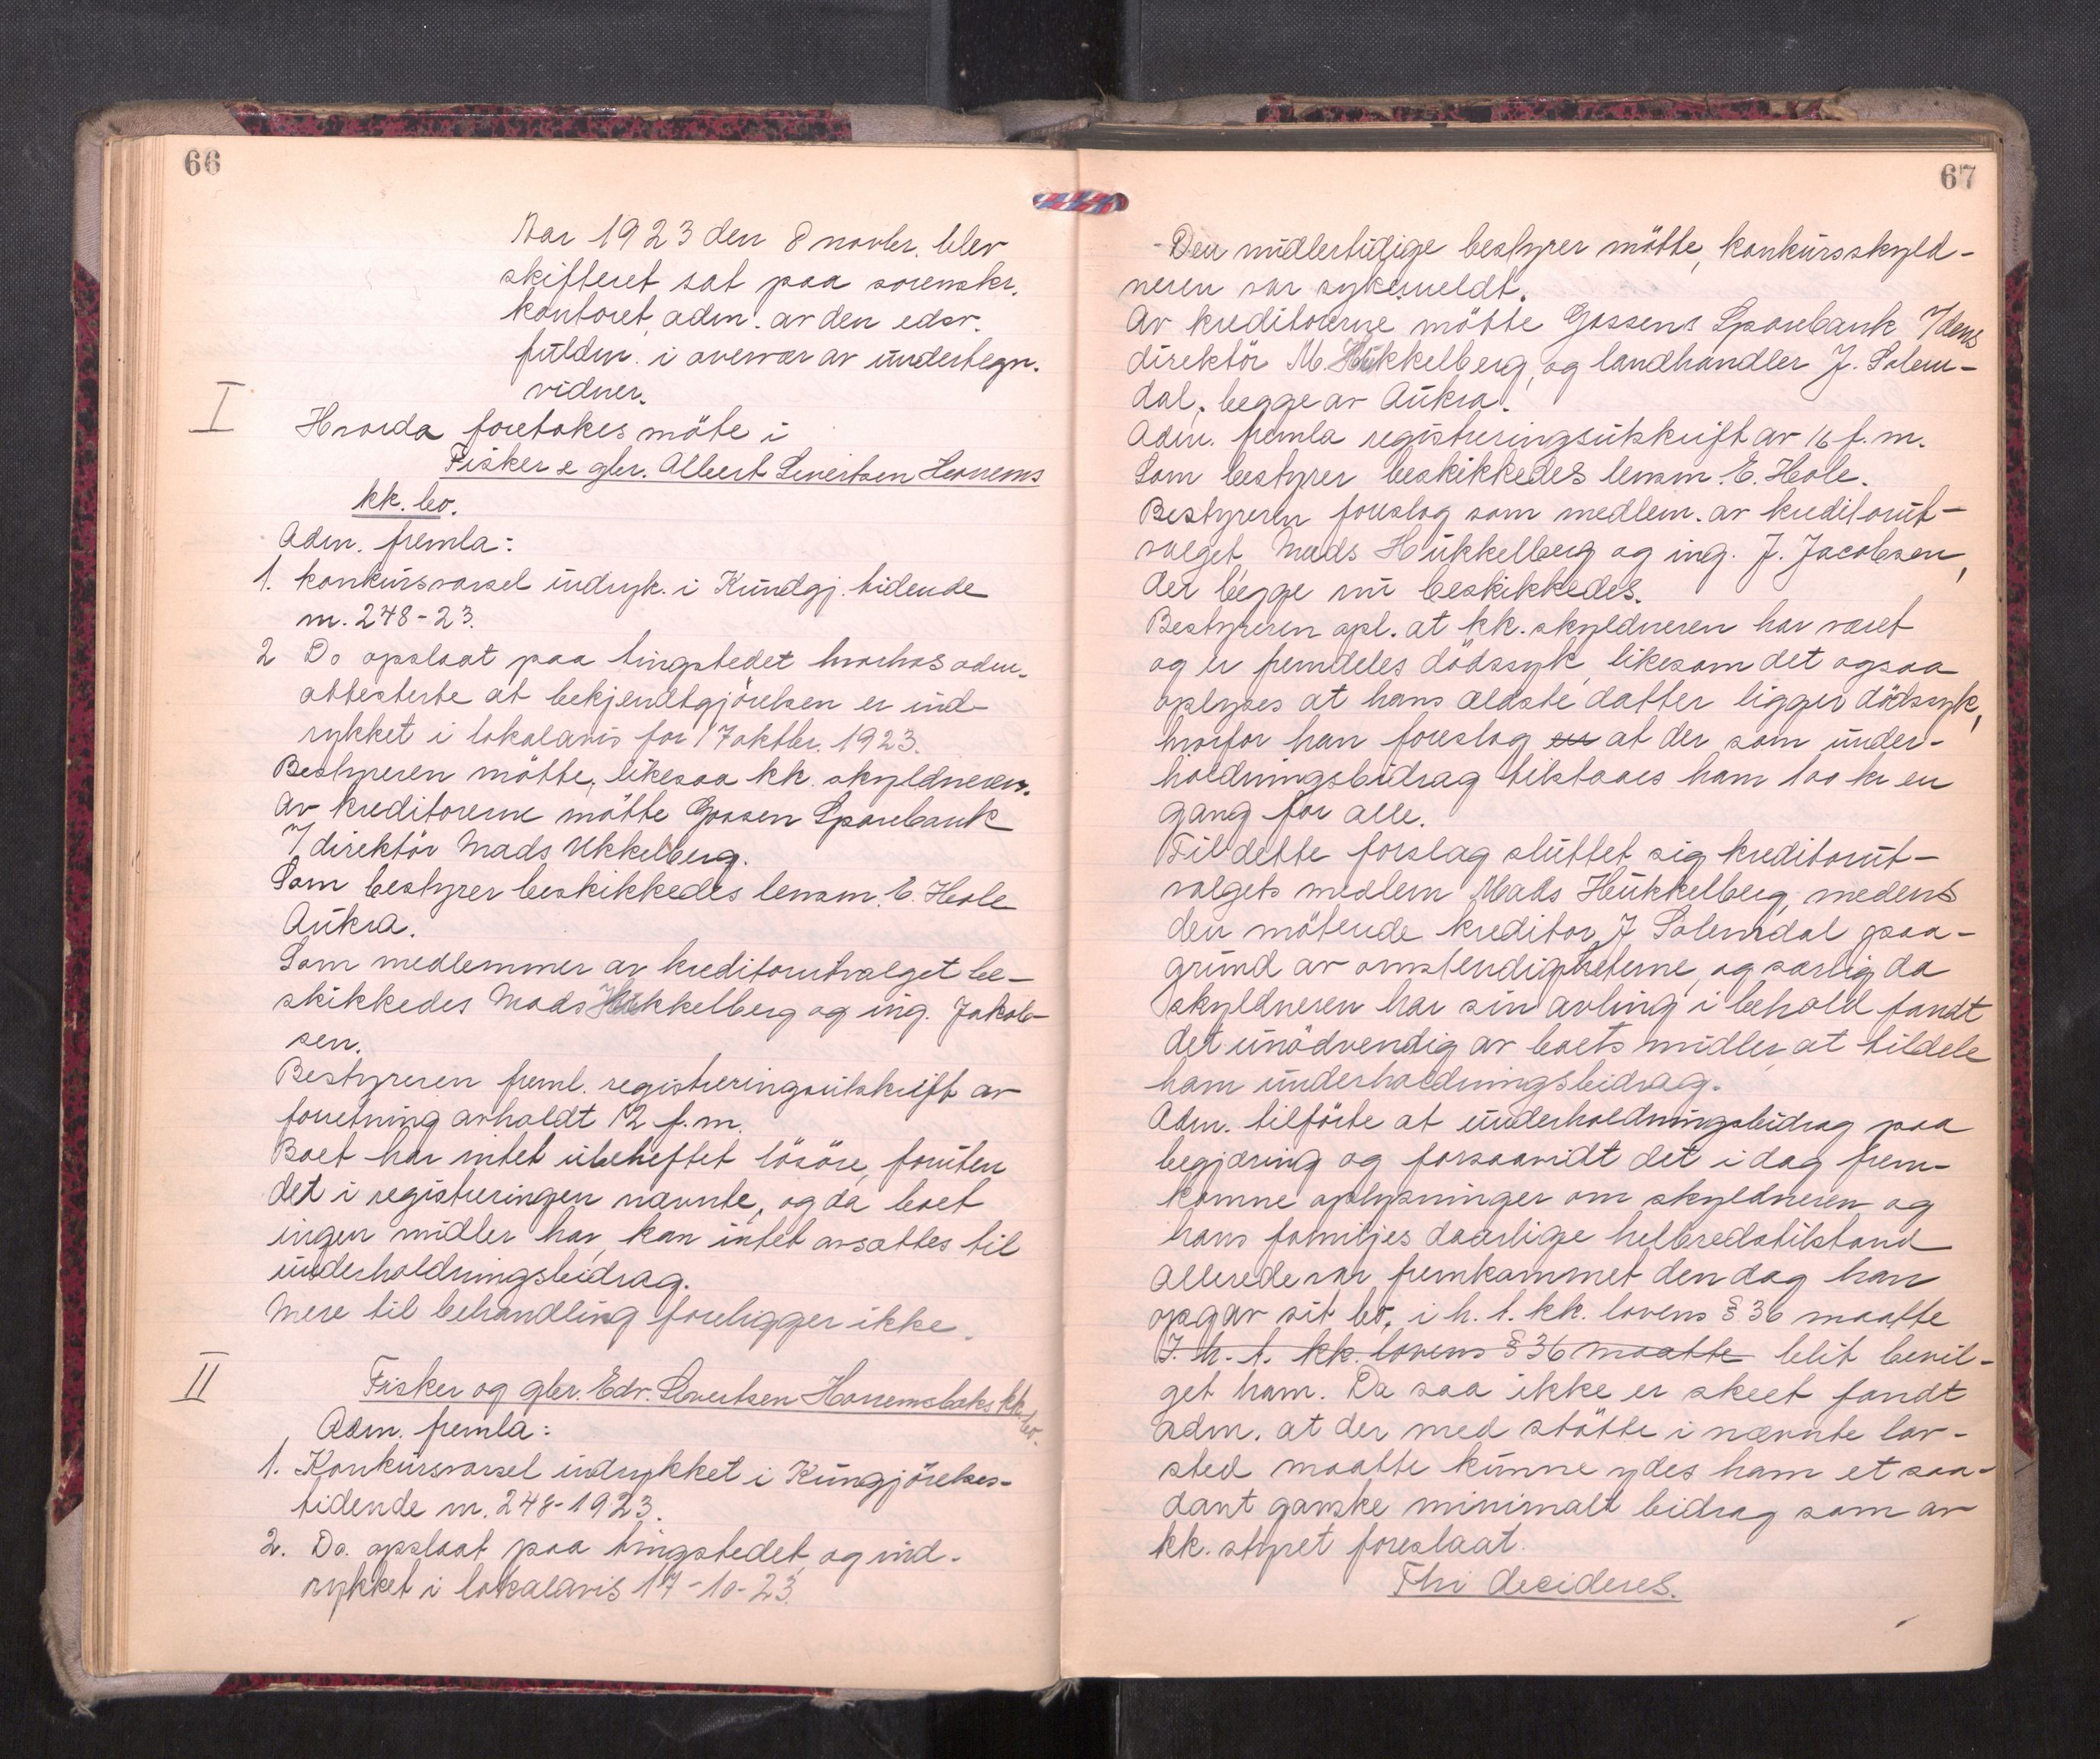 66
Aar 1923 den 8 novbr. blev
skifteret sat paa sorenskr.
kontoret, adm. av den edsv.
fuldm. i overvær av undertegn.
vidner.
I
Hvorda foretokes möte i
Fisker & gbr. Albert Sivertsen Horrems
kk. bo.
Adm. fremla:
1. konkursvarsel indryk. i Kundgj. tidende
nr. 248-23.
2 Do opslaat paa tingstedet hvorhos adm.
attesterte at bekjendtgjörelsen er ind-
rykket i lokalavis for 17 oktbr. 1923.
Bestyreren mötte, likesaa kk. skyldneren.
Av kreditorerne mötte Gossen Sparebank
v/ direktör Mads Ukkelberg.
Som bestyrer beskikkedes lensm. E. Hole
Aukra.
Som medlemmer av kreditorutvalget be-
skikkedes Mads Hukkelberg og ing. Jakob-
sen.
Bestyreren freml. registreringsutskrift av
forretning avholdt 12 f. m.
Boet har intet ubeheftet lösöre, foruten
det i registreringen nævnte, og da boet
ingen midler har, kan intet avsættes til
underholdningsbidrag.
Mere til behandling foreligger ikke.
II
Fisker og gbr. Edv. Sivertsen Horremsbaks kk.
bo.
Adm. fremla:
1. Konkursvarsel indrykket i Kungjörelses-
tidende nr. 248-1923.
2. Do. opslaat paa tingstedet, og ind-
rykket i lokalavis 17-10-23.
67
Den midlertidige bestyrer mötte, konkursskyld-
neren var sykemeldt.
Av kreditorerne mötte Gossens Sparebank v/dens
direktör M. Hukkelberg, og landhandler J. Solem-
dal, begge av Aukra.
Adm. fremla registreringsutskrift av 16 f. m.
Som bestyrer beskikkedes lensm. E. Hole.
Bestyreren foreslog som medlem. av kreditorut-
valget Mads Hukkelberg og ing. J. Jacobsen,
der begge nu beskikkedes.
Bestyreren opl. at kk. skyldneren har været
og er fremdeles dödssyk, likesom det ogsaa
oplyses at hans ældste datter ligger dödssyk,
hvorfor han foreslog en at der som under-
holdningsbidrag tilstaaes ham 100 kr en
gang for alle.
Til dette forslag sluttet sig kreditorut-
valgets medlem Mads Hukkelberg, medens
den mötende kreditor J Solemdal paa-
grund av omstendigheterne, og særlig da
skyldneren har sin avling i behold fandt
det unödvendig av boets midler at tildele
ham underholdningsbidrag.
Adm. tilförte at underholdningsbidrag paa
begjæring og forsaavidt det i dag frem-
komne oplysninger om skyldneren og
hans familjes daarlige helbredstilstand
allerede var fremkommet den dag han
opgav sit bo, i h. t. kk. lovens § 36 maatte
I. h. t. kk. lovens § 36 maatte blit bevil-
get ham. Da saa ikke er skeet fandt
adm. at der med stötte i nævnte lov-
sted maatte kunne ydes ham et saa-
dant ganske minimalt bidrag som av
kk. styret foreslaat.
Thi decideres.